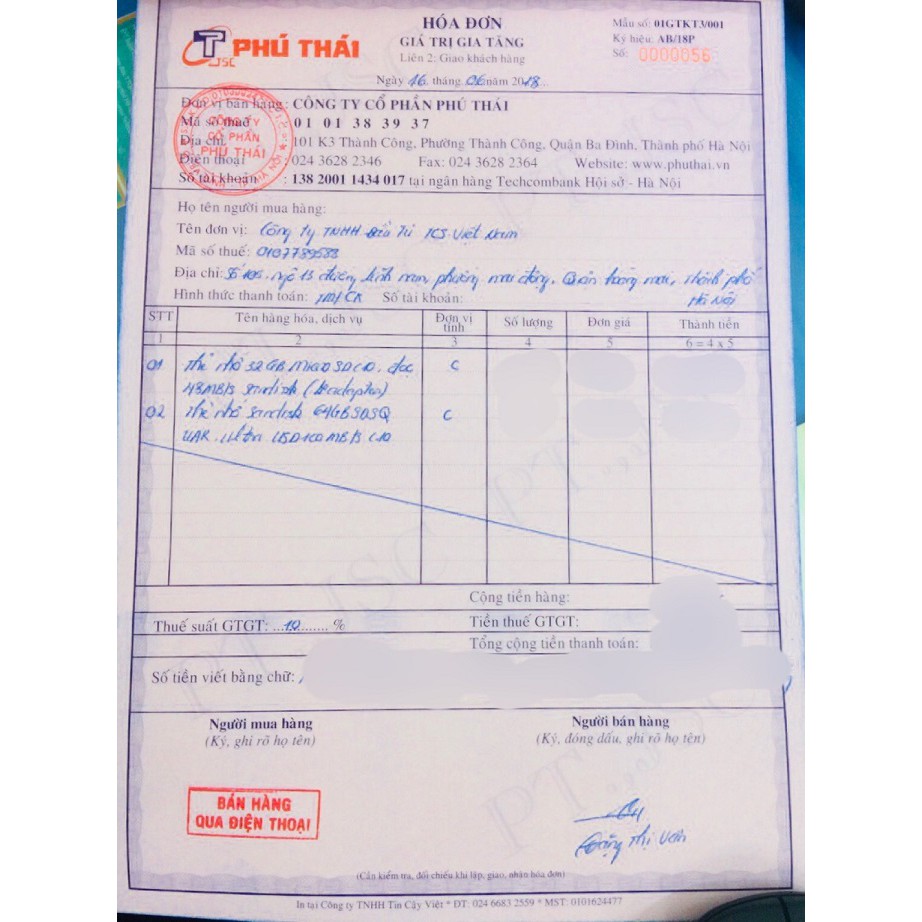 PHÚ THÁI
JSC
HÓA ĐƠN
GIÁ TRỊ GIA TĂNG
Liên 2: Giao khách hàng
Ngày 16 tháng 06 năm 2018
Mẫu số: 01GTKT3/001
Ký hiệu: AB/18P
Số: 0000056
Đơn vị bán hàng : CÔNG TY CỔ PHẦN PHÚ THÁI
Mã số thuế 01 01 38 39 37
Địa chỉ 101 K3 Thành Công, Phường Thành Công, Quận Ba Đình, Thành phố Hà Nội
Điện thoại : 024 3628 2346 Fax: 024 3628 2364 Website: www.phuthai.vn
Số tài khoản : 138 2001 1434 017 tại ngân hàng Techcombank Hội sở - Hà Nội
CÔNG TY
CỔ PHẦN
PHÚ THÁI
Họ tên người mua hàng:
Tên đơn vị: Công ty TNHH Đầu Tư ICS Việt Nam
Mã số thuế:
Địa chỉ: Số ngõ 13 đường Lĩnh Nam, phường Mai Động, Quận Hoàng Mai, Thành phố
Hà Nội
Hình thức thanh toán: TM/CK Số tài khoản:
STT Tên hàng hóa, dịch vụ Đơn vị tính Số lượng Đơn giá Thành tiền
1 2 3 4 5 6 = 4 x 5
01 Thẻ nhớ 32GB Micro SDC10, đọc C
48MB/s Sandisk
02 Thẻ nhớ Sandisk 64GB SDSQ C
UAR. 100MB/s C10
Cộng tiền hàng:
Thuế suất GTGT: ...10........ % Tiền thuế GTGT:
Tổng cộng tiền thanh toán:
Số tiền viết bằng chữ:
Người mua hàng
(Ký, ghi rõ họ tên)
Người bán hàng
(Ký, đóng dấu, ghi rõ họ tên)
BÁN HÀNG
QUA ĐIỆN THOẠI
Đặng Thị Vân
(Cần kiểm tra, đối chiếu khi lập, giao, nhận hóa đơn)
In tại Công ty TNHH Tin Cậy Việt * ĐT: 024 6683 2559 * MST: 0101624477